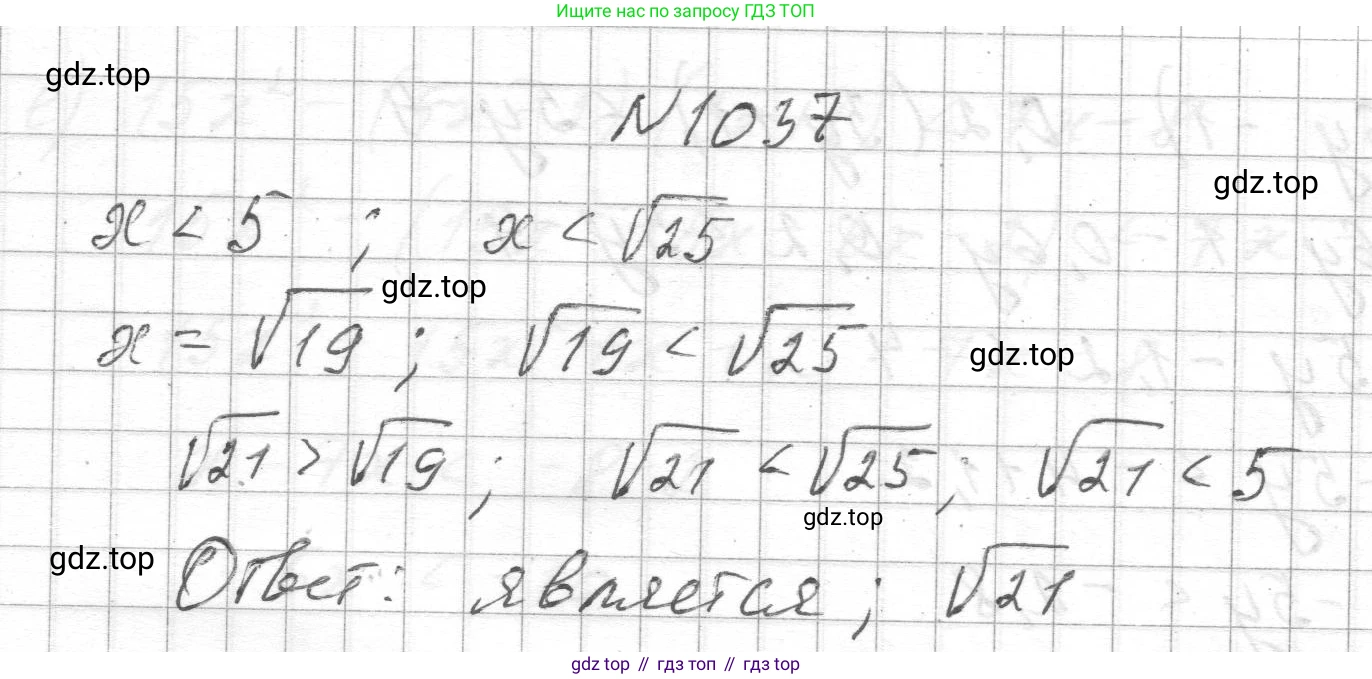 Ищите нас по запросу ГДЗ ТОП
gdz.top
N 1037
gdz.top
x < 5 ; x < √25
gdz.top
x = √19 ; √19 < √25
gdz.top
√21 > √19 ; √21 < √25 ; √21 < 5
gdz.top
gdz.top
Ответ: является ; √21
gdz top // гдз топ // gdz top